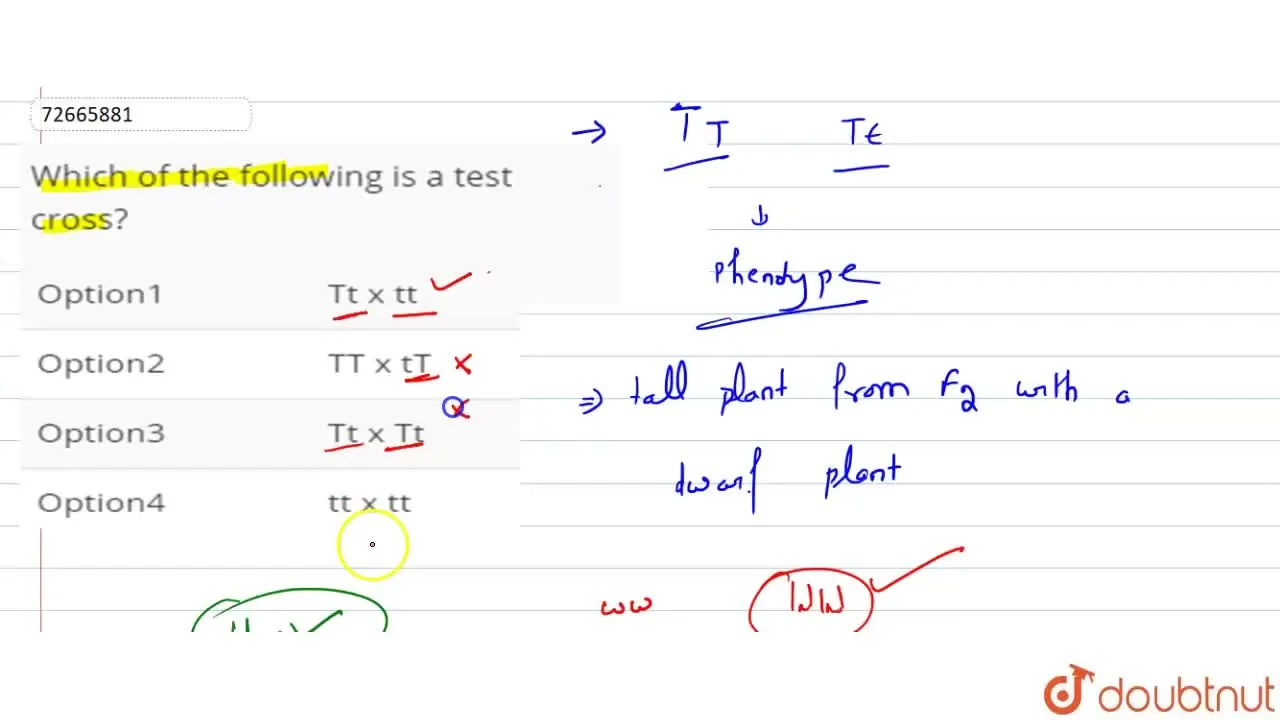 72665881
Which of the following is a test
cross?
Option1 Tt x tt
Option2 TT x tT
Option3 Tt x Tt
Option4 tt x tt
→ TT Tt
↓
phenotype
⇒ tall plant from F2 with a
dwarf plant
ww WW
doubtnut